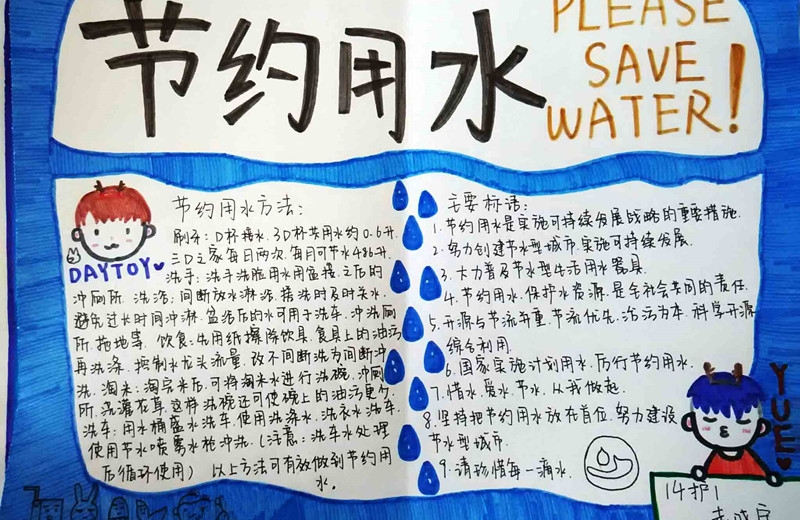 节约用水
PLEASE
SAVE
WATER!
节约用水方法:
刷牙:口杯接水.3口杯共用水约0.6升.
三口之家每日两次,每月可节水486升.
洗手:洗手洗脸用水用盆接.之后的
冲厕所.洗浴:间断放水淋浴.搓洗时及时关水.
避免过长时间冲淋.盆浴后的水可用于洗车.冲洗厕
所.拖地等.饮食:先用纸擦除饮具.食具上的油污
再洗涤.控制水龙头流量.改不间断洗为间断冲
洗.淘米:淘完米后.可将淘米水进行洗碗.冲厕
所.浇灌花草.这样洗碗还可使碗上的油污更少.
洗车:用水桶盛水洗车.使用洗涤水.洗衣水洗车.
使用节水喷雾水枪冲洗.(注意:洗车水处理
后循环使用) 以上方法可有效做到节约用
水.
DAYTOY
主要标语:
1.节约用水是实施可持续发展战略的重要措施.
2.努力创建节水型城市.实施可持续发展.
3.大力普及节水型生活用水器具.
4.节约用水.保护水资源.是全社会共同的责任.
5.开源与节流并重.节流优先.治污为本.科学开源
综合利用.
6.国家实施计划用水.厉行节约用水.
7.惜水.爱水.节水.从我做起.
8.坚持把节约用水放在首位.努力建设
节水型城市.
9.请珍惜每一滴水.
YUE
14护1